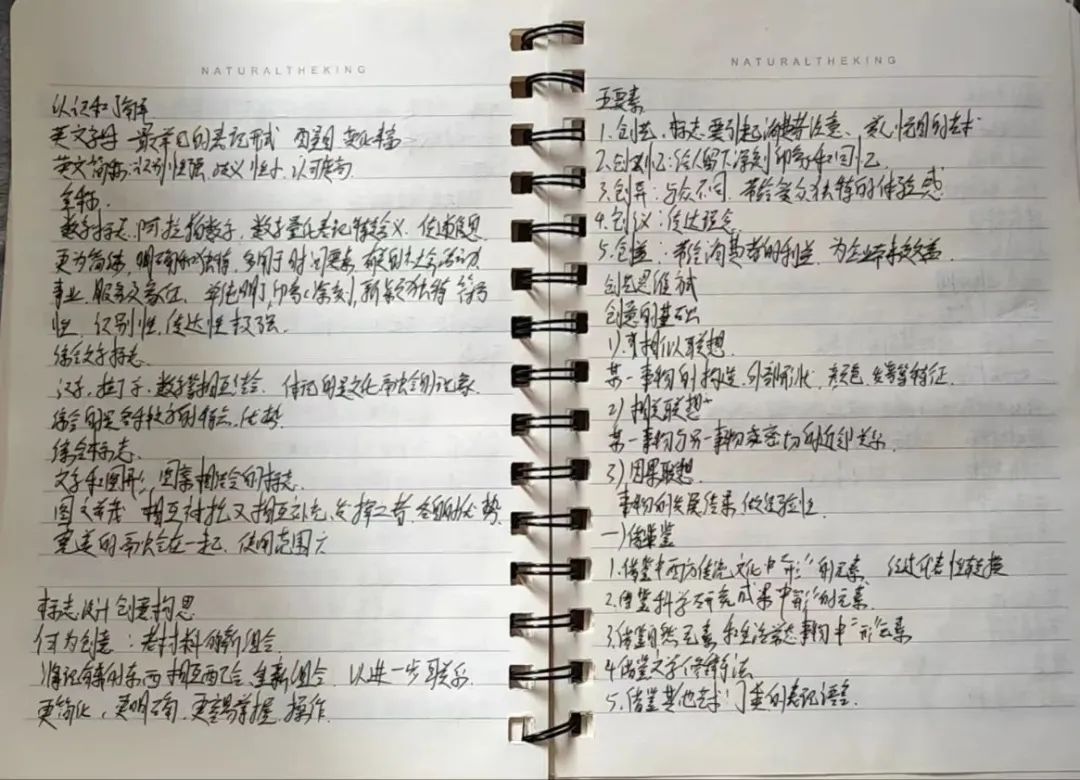 NATURALTHEKING
认识和了解
英文字母 最常见的表记形式
英文简称:识别性强、
全称.
数字标志.阿拉伯数字,数字量化表记特定含义.传递信息
更为简练,明确和独特,多用于时间要素,
事业、服务及象征、 单纯明了,印象深刻,新颖独特 符号
性 识别性,传达性极强.
综合文字标志.
汉字,拉丁字,数字等相互结合.
综合的是各种文字的特点.优势
综合标志.
文字和图形,图案相结合的标志.
图文并茂 相互衬托又相互补充,发挥二者各自的优势
完美的融合在一起,使用范围广
标志设计创意构思
何为创意:老材料的新组合
将已有的东西相互配合,重新组合.以进一步联系.
更简化,更明确,更容易掌握,操作.
NATURALTHEKING
五要素
1.创艺.标志要引起消费者注意、
2.创忆:给人留下深刻印象和回忆
3.创异:与众不同.带给受众独特的体验感
4.创议:传达理念
5.创益:带给消费者的利益,为企业带来效益
创意思维
创意的基础
1).相似联想.
某一事物的构造.外部形状,颜色,等特征.
2)相关联想
某一事物与另一事物密切的近邻关系
3)因果联想
事物的发展结果,做经验性.
一)借鉴
1.借鉴中西方传统文化中“形”的元素
2.借鉴科学研究成果中“形”的元素.
3.借鉴自然元素和生活常态事物中“形”元素
4.借鉴文字修辞手法
5.借鉴其他艺术门类的表记语言.